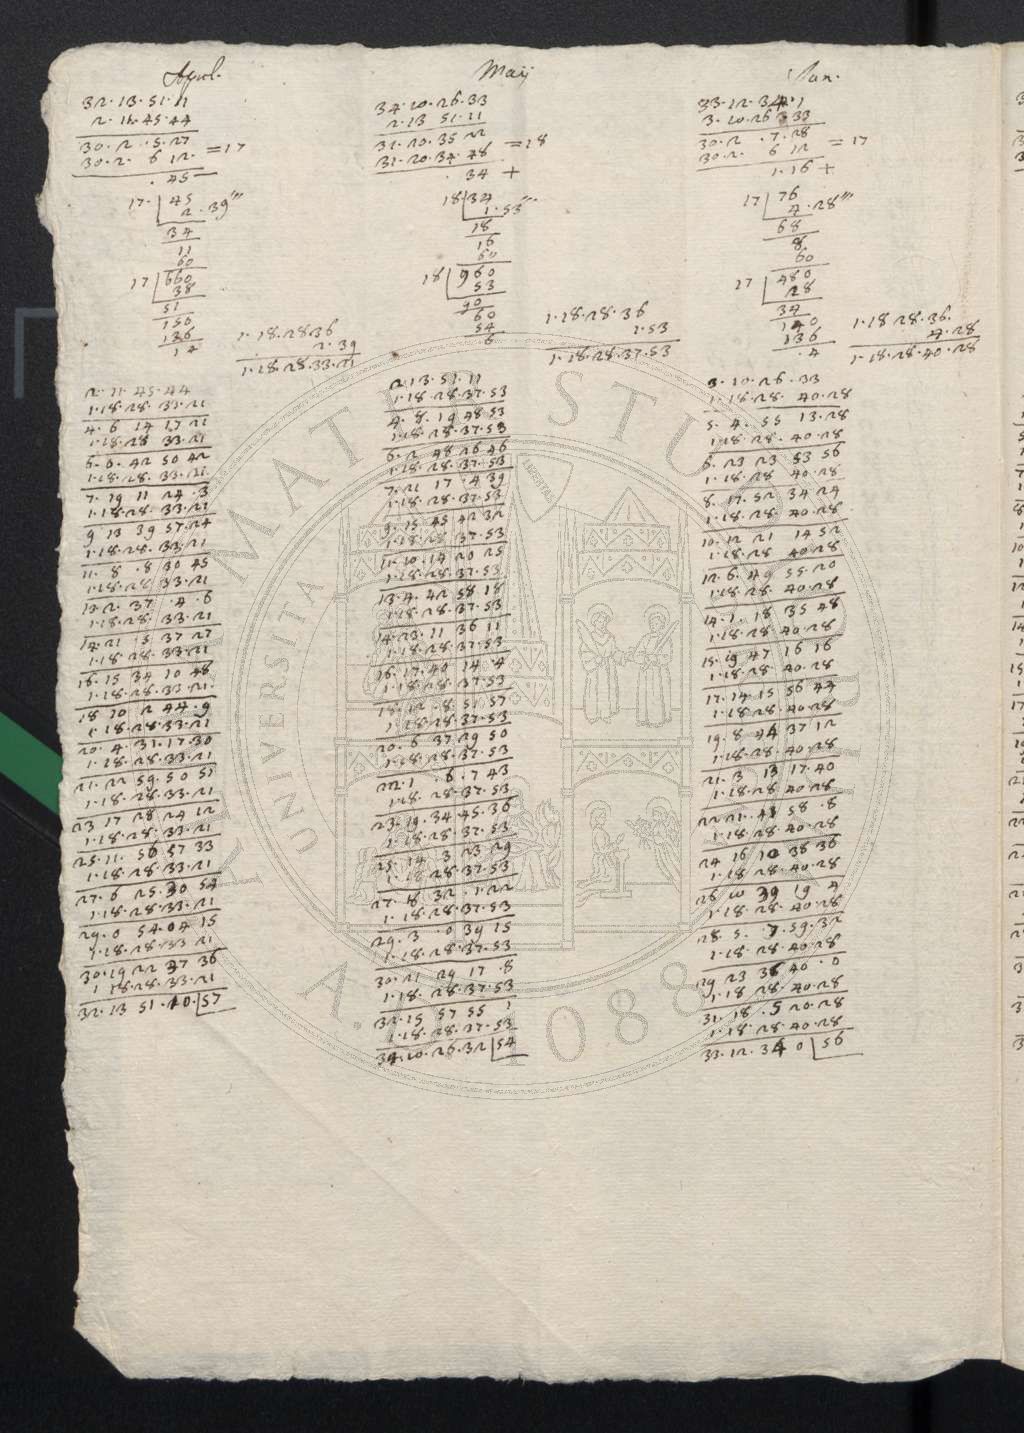 Apul.
32.13.51.11
2.11.45.44
30.2.5.27
30.2.6 12. =17
.45
17. 45
2.39'''
34
11
60
17 660
38
51
150
136
14
1.18.28 36
2.39
1.18.28.33.21
2.11.45.44
1.18.28 33.21
4.6 14 17 21
1.18.28 33.21
6.6.42 50 42
1.18.28.33.21
7.19 11 24.3
1.18.28 33.21
9 13 39 57.24
1.18.28.33.21
11.8.8 30 45
1.18.28 33.21
13 2.37.4.6
1.18.28 33.21
14.21.5 37 27
1.18.28 33.21
16.15 34 10 48
1.18.28.33 21.
18 10 2 44.9
1.18.28.33.21
20.4.31.17.30
1.18.28 33.21
21.22 59.50 51
1.18.28.33.21
23 17 28 24 12
1.18.28.33.21
25.11.56 57 33
1.18.28 33.21
27.6 25.30 54
1.18.28.33.21
29.0 54.04 15
1.18.28 33 21
30.19 22 37 36
1 18.28.33.21
32.13 51.10.57
Maij
34.10.26.33
2.13 51.11
31.20.35 22
31.20.34.48 =18
.34 +
18 34
1.53'''
18
16
60
18 960
53
90
60
54
6
1.18.28.36
1.53
1.18.28.37.53
2.13.51.11
1.18.28.37.53
4.8.19 48 53
1.18.28.37.53
6.2 48 26 46
1.18.28.37.53
7.21 17.4 39
1.18.28.37.53
9.15 45 42 32
1.18.28 37.53
11.10.14 20 25
1.18.28.37.53
13.4.42 58 18
1.18.28.37.53
14.23.11 36 11
1.18.28.37.53
16.17.40 14.4
1.18.28.37.53
18.12.8 51 57
1.18.28.37.53
20.6 37 29 50
1.18.28.37.53
22.1.6.7 43
1.18.28.37.53
23.19.34.45.36
1.18.28.37.53
25.14 3 23 29
1.18.28 37.53
27.8 32.1.22
1.18.28.37.53
29.3.0 39 15
1.18.28.37.53
30.21 29 17.8
1.18.28.37.53
32.15 57 55 1
1.18.28.37.53
34.10.26.32 54
Jun.
33.12.34.1
3.10.26 33
30.2.7.28
30.2.6 12 =17
1.16 +
17 76
4.28'''
68
8
60
17 480
28
34
140
136
.4
1.18 28.36.
4.28
1.18.28.40.28
3.10.26.33
1.18.28.40.28
5.4.55 13.28
1.18.28.40.28
6.23 23 53 56
1.18.28 40.28
8.17.52 34 24
1.18.28.40.28
10.12 21 14 52
1.18.28 40.28
12.6.49 55.20
1.18.28.40.28
14.1.18 35 48
1.18.28.40.28
15.19 47 16 16
1.18.28 40.28
17.14.15 56 44
1.18.28.40.28
19.8.44 37 12
1.18.28.40.28
21.3 13 17.40
1.18.28 40.28
22 21.41 58.8
1.18.28.40.28
24 16 10 38 36
1.18.28.40.28
26 10 39 19 4
1.18.28.40.28
28.5.7.59.32
1.18.28.40.28
29 23 36 40.0
1.18 28 40.28
31.18.5 20.28
1.18.28 40.28
33.12.34 0 56
ALMA MATER STUDIORUM
A.D. 1088
UNIVERSITA